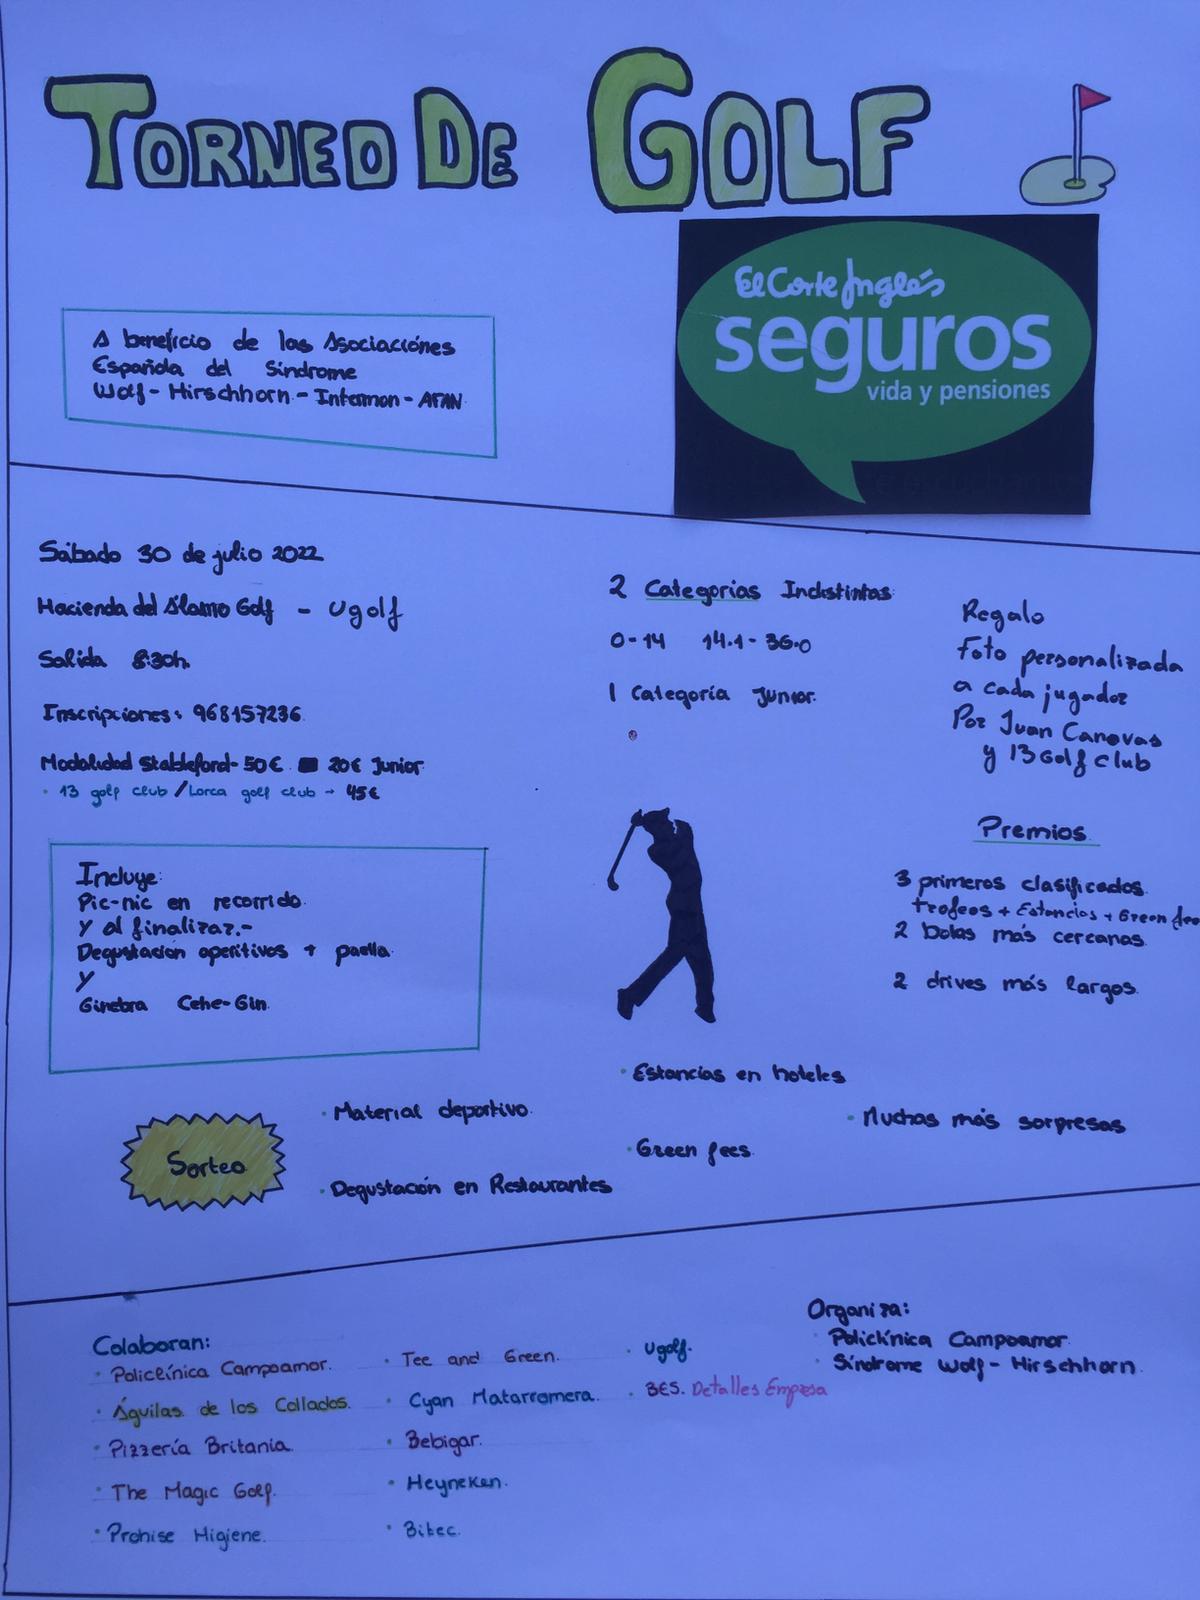 TORNEO DE GOLF
El Corte Inglés
seguros
vida y pensiones
A beneficio de las Asociaciónes
Española del Síndrome
Wolf-Hirschhorn-Intermon-AFAN
Sábado 30 de julio 2022
Hacienda del Álamo Golf - Ugolf
Salida 8:30h.
Inscripciones: 968157236.
Modalidad Stableford-50€ 20€ Junior
· 13 golf club/Lorca golf club → 45€
2 Categorias Indistintas
0-14 14.1-36.0
1 Categoría Junior.
Regalo
Foto personalizada
a cada jugador
Por Juan Canovas
y 13 Golf club
Incluye:
Pic-nic en recorrido
Y al finalizar.-
Degustación aperitivos + paella
Y
Ginebra Cehe-Gin.
Premios
3 primeros clasificados.
trofeos + Estancias + Green fee
2 bolas más cercanas.
2 drives más largos.
Sorteo
· Material deportivo.
· Degustación en Restaurantes
· Estancias en hoteles
· Green fees.
· Muchas más sorpresas
Colaboran:
· Policlínica Campoamor.
· Águilas de los Collados.
· Pizzería Britania
· The Magic Golf.
· Prohise Higiene.
· Tee and Green.
· Cyan Matarromera.
· Bebigar.
· Heyneken.
· Bitec.
· Ugolf.
· BES. Detalles Empresa
Organiza:
· Policlínica Campoamor.
· Síndrome Wolf-Hirschhorn.